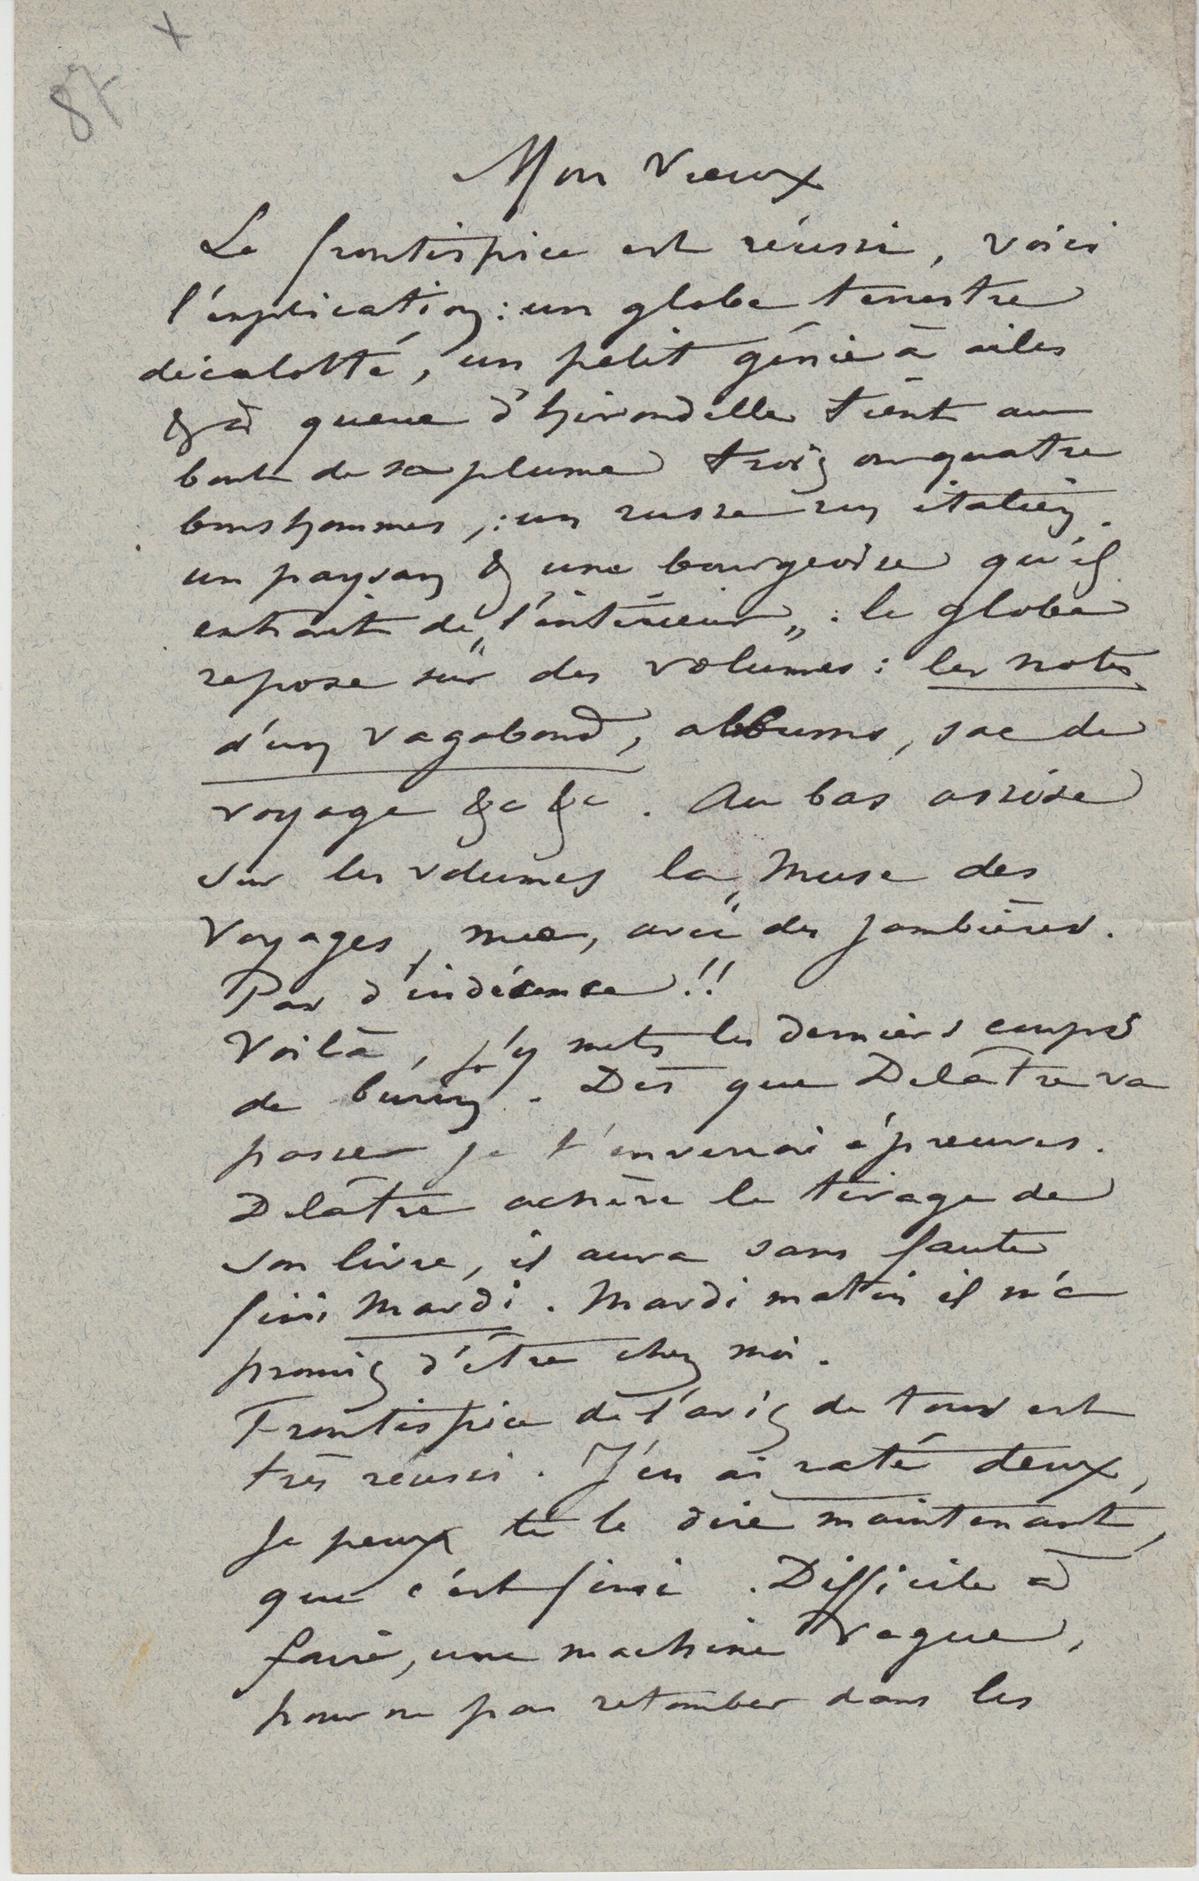 87 x
Mon Vieux
Le frontispice est réussi, voici
l'explication : un globe terrestre
décalotté, un petit génie à ailes
& à queue d'hirondelle tient au
bout de sa plume trois ou quatre
bonshommes, : un russe un italien.
un paysan & une bourgeoise qu'il
extrait de "l'intérieur" : le globe
repose sur des volumes : les notes
d'un vagabond, albums, sac de
voyage &c &c . Au bas assise
sur les volumes la "Muse des
Voyages, nue, avec" des jambières.
Pas d'indécence !!
Voilà, j'y mets les derniers coups
de burin. Dès que Delâtre va
passer je t'enverrai épreuves.
Delâtre achève le tirage de
son livre, il aura sans faute
fini Mardi. Mardi matin il m'a
promis d'être chez moi.
Frontispice de l'avis de tous est
très réussi. J'en ai raté deux,
je peux te le dire maintenant,
que c'est fini. Difficile à
faire, une machine vague,
pour ne pas retomber dans les